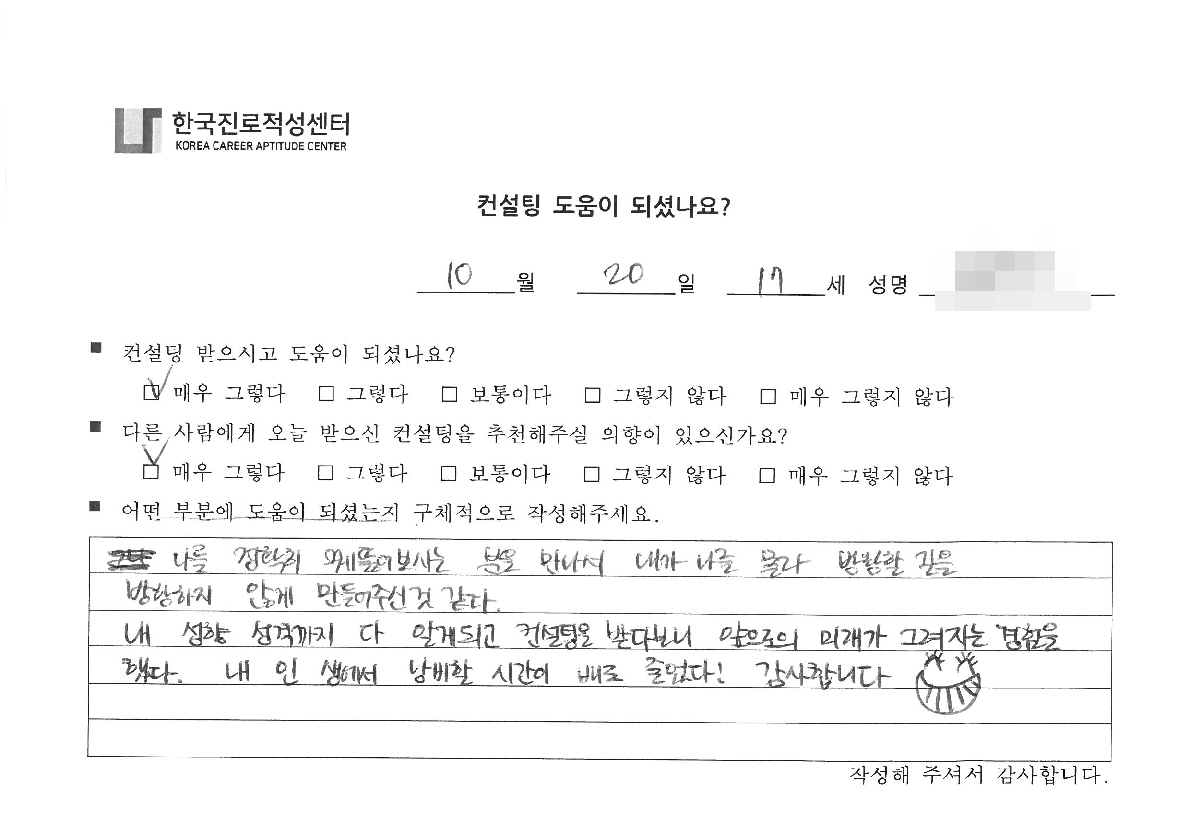 한국진로적성센터
KOREA CAREER APTITUDE CENTER
컨설팅 도움이 되셨나요?
10월 20일 17세 성명
■ 컨설팅 받으시고 도움이 되셨나요?
☑ 매우 그렇다 □ 그렇다 □ 보통이다 □ 그렇지 않다 □ 매우 그렇지 않다
■ 다른 사람에게 오늘 받으신 컨설팅을 추천해주실 의향이 있으신가요?
☑ 매우 그렇다 □ 그렇다 □ 보통이다 □ 그렇지 않다 □ 매우 그렇지 않다
■ 어떤 부분에 도움이 되셨는지 구체적으로 작성해주세요.
나를 정확히 꿰뚫어보시는 분을 만나서 내가 나를 몰라 방황할 길을
방황하지 않게 만들어주신것 같다.
내 성향 성격까지 다 알게되고 컨설팅을 받다보니 앞으로의 미래가 그려지는 경험을
했다. 내 인생에서 낭비할 시간이 배로 줄었다! 감사합니다
작성해 주셔서 감사합니다.